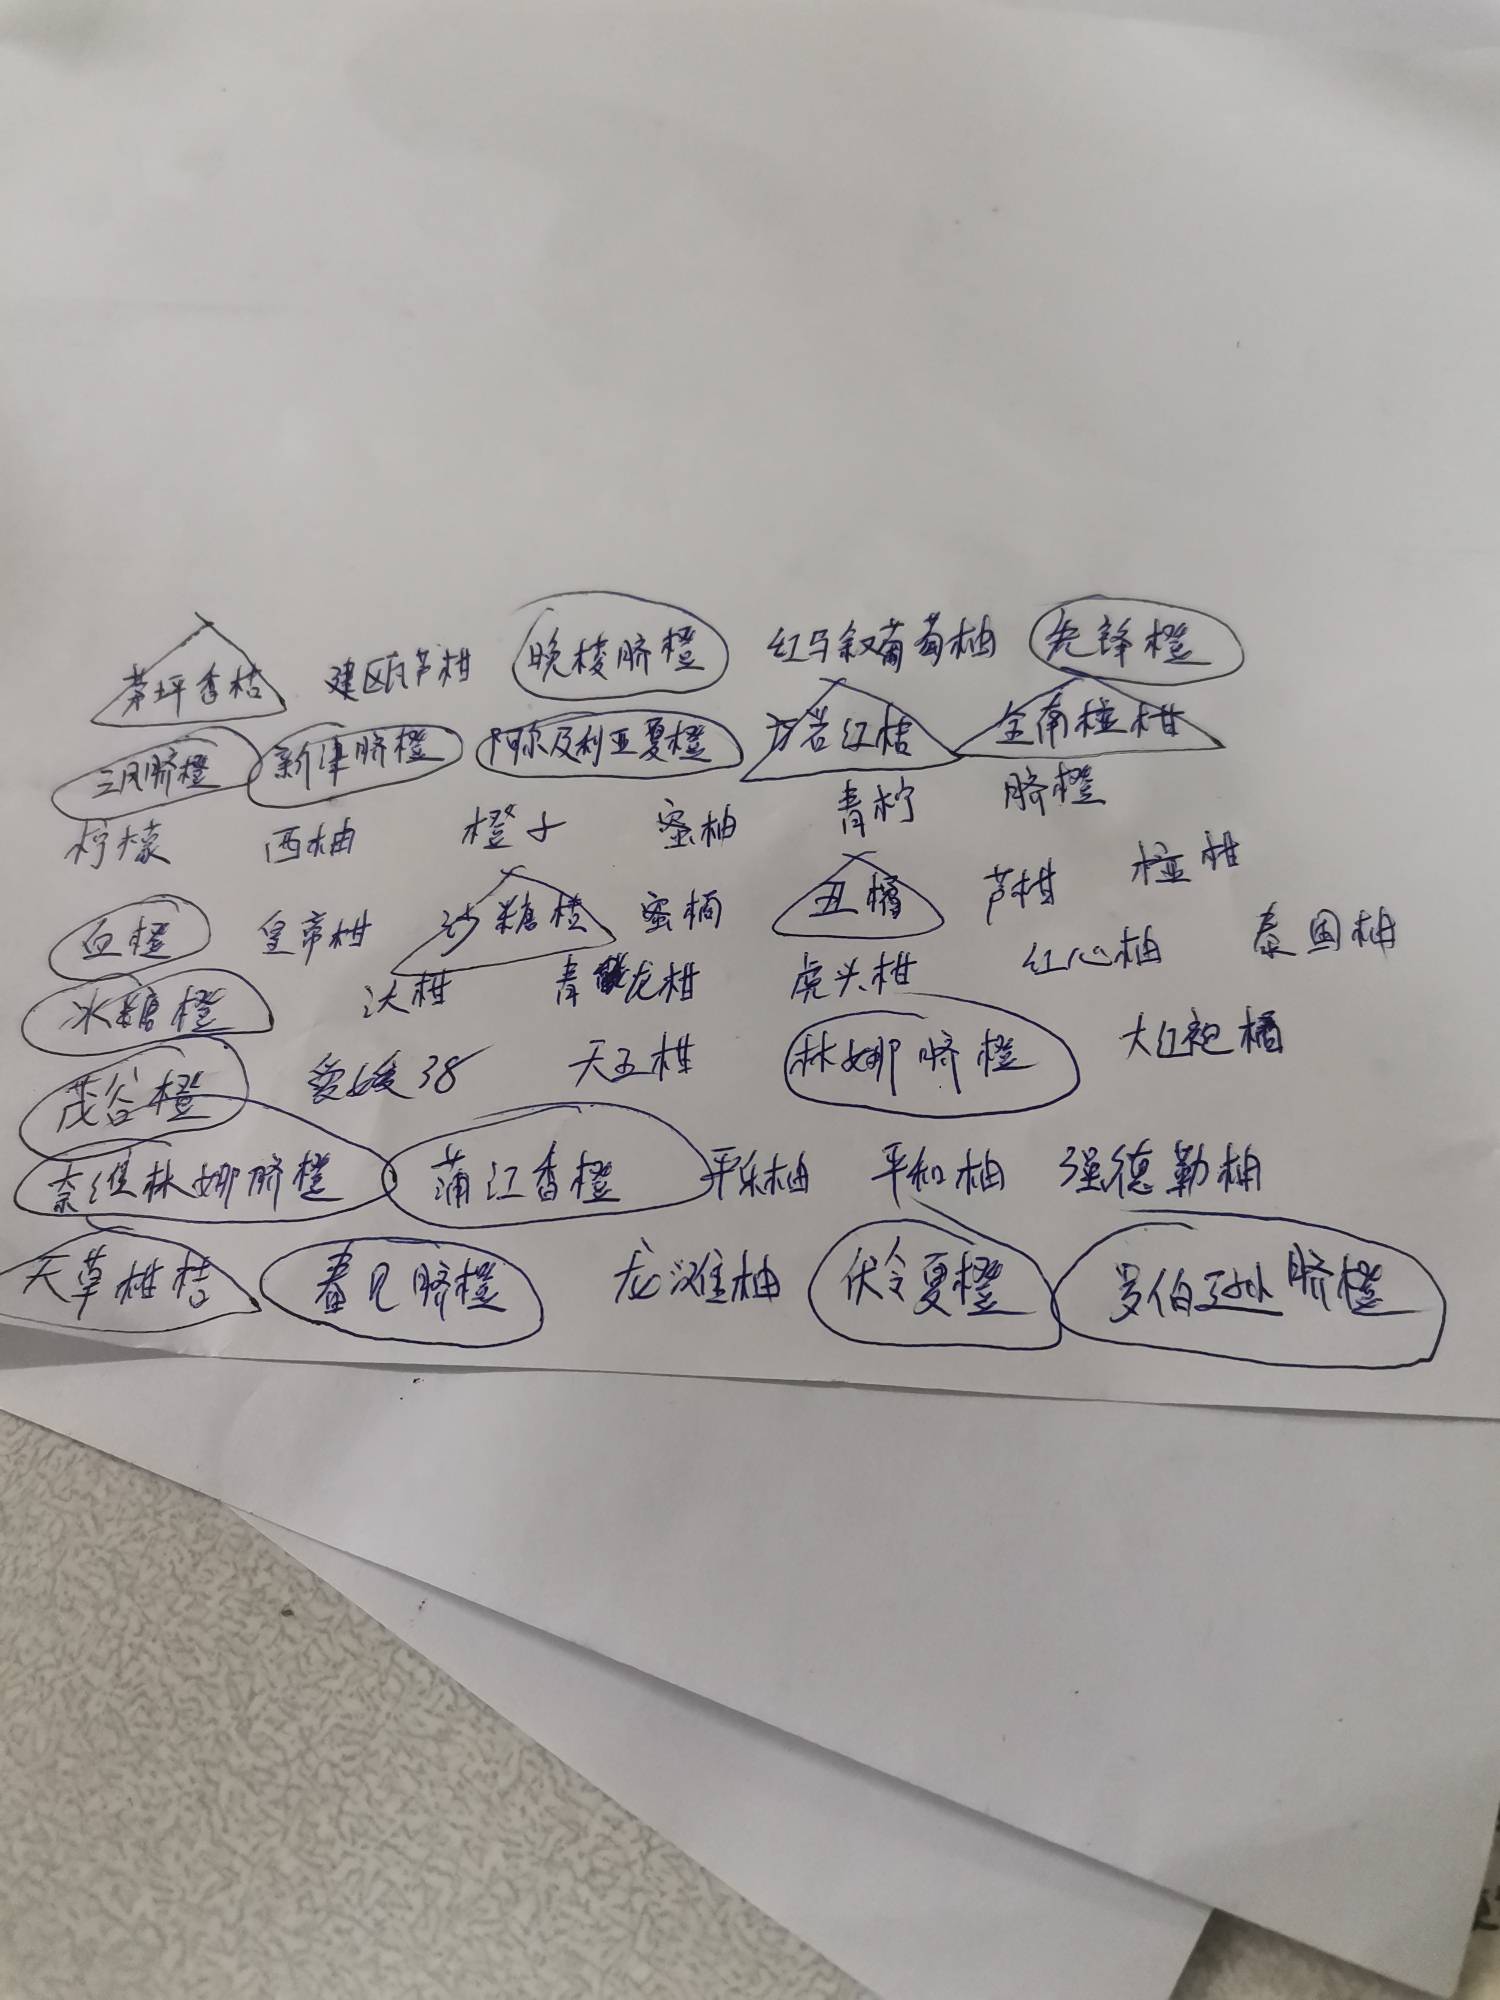 茅坪香桔 建瓯芦柑 晚棱脐橙 红马叙葡萄柚 先锋橙
三凤脐橙 新津脐橙 阿尔及利亚夏橙 万若红桔 全南椪柑
柠檬 西柚 橙子 蜜柚 青柠 脐橙
血橙 皇帝柑 沙糖橙 蜜橘 丑橘 芦柑 椪柑
冰糖橙 沃柑 青龙柑 虎头柑 红心柚 泰国柚
茂谷橙 爱媛38 天五柑 林娜脐橙 大红袍橘
奈维林娜脐橙 蒲江香橙 平乐柚 平和柚 强德勒柚
天草柑桔 春见脐橙 龙滩柚 伏令夏橙 罗伯 脐橙